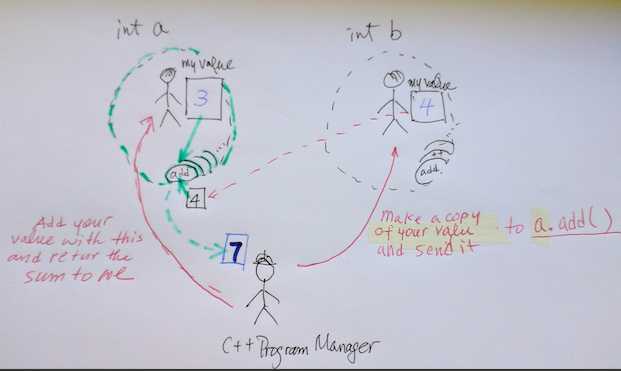 int a
int b
my value
3
my value
4
add
++
add.
4
Add your
value with this
and retur the
sum to me
7
make a copy
of your valu
and send it
to a.add()
C++ Program Manager